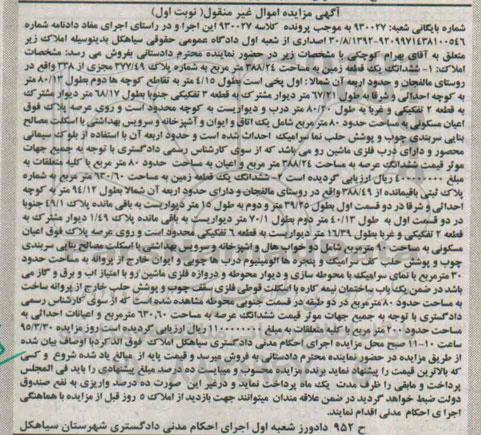 آگهی مزایده اموال غیر منقول( نوبت اول)
شماره بایگانی شعبه: ۹۳۰۰۲۷ به موجب پرونده کلاسه ۹۳۰۰۲۷ این اجرا و در راستای اجرای مفاد دادنامه شماره
۹۲۰۹۹۷۱۴۳۸۱۰۰۵۴۶-۳۰/۸/۱۳۹۲ اصداری از شعبه اول دادگاه عمومی حقوقی سیاهکل بدینوسیله املاک زیر
متعلق به آقای بهرام کوچکی با مشخصات زیر در حضور نماینده محترم دادستانی بفروش می رسد: مشخصات
املاک: ۱- ششدانگ یک قطعه زمین به مساحت ۳۸۸/۲۴ متر مربع به شماره پلاک ۳۷۷/۴۹ مجزی از ۳۳۸ واقع در
روستای مالفجان و حدود اربعه آن شمالا: اول پخی است بطول ۴/۱۵ متر به تقاطع کوچه ها دوم بطول ۸۰/۱۳ متر
به کوچه احداثی و شرقا به طول ۶۷/۲۱ متر دیوار مشترک به قطعه ۳ تفکیکی جنوبا بطول ۶۸/۱۷ متر دیوار مشترک
به قطعه ۲ تفکیکی و غربا بطول ۸۰/۲۰ متر درب و دیواریست به کوچه محدود است و روی عرصه پلاک فوق
اعیان مسکونی به مساحت حدود ۸۰ متر مربع شامل یک اتاق و ایوان و آشپزخانه و سرویس بهداشتی با اسکلت مصالح
بنایی سربندی چوب و پوشش حلب نما سرامیک احداث شده است و حدود اربعه آن با استفاده از بلوک سیمانی
محصور و دارای درب فلزی ماشین رو می باشد که از سوی کارشناس رسمی دادگستری با توجه به جمیع جهات
موثر قیمت ششدانگ عرصه به مساحت ۳۸۸/۲۴ متر مربع و اعیان به مساحت حدود ۸۰ متر مربع با کلیه متعلقات به
مبلغ ریال ارزیابی گردیده است ۲- ششدانگ یک قطعه زمین به مساحت ۶۳۰/۶۰ متر مربع به شماره
پلاک ثبتی باقیمانده از ۳۸۸/۴۹ واقع در روستای مالفجان و دارای حدود اربعه آن شمالا بطول ۹۴/۱۲ متر به کوچه
احداثی و شرقا در دو قسمت اول بطول ۳۹/۲۵ متر و دوم به طول ۱۵ متر دیواریست به باقی مانده پلاک ۴۹/۱ جنوبا
در دو قسمت اول به طول ۴۰/۱۳ متر دوم بطول ۷۰/۱ متر دیواریست به باقی مانده پلاک ۱/۴۹ دیوار مشترک به
قطعه ۲ تفکیکی و غربا بطول ۱۶/۳۹ دیواریست به قطعه ۶ تفکیکی محدود است و روی عرصه پلاک فوق اعیان
مسکونی به مساحت ۹۰ متر مربع شامل دو خواب هال و آشپزخانه و سرویس بهداشتی با اسکلت مصالح بنایی سربندی
چوب و پوشش حلب کف سرامیک و پنجره ها آلومینیوم در داخل ساختمان و ایوان خارج از پروانه به مساحت حدود
۳۰ متر مربع با نمای سرامیک با محوطه سازی و دیوار محوطه و دروازه فلزی ماشین رو با امتیاز آب و برق و گاز می
باشد در ضمن یک باب ساختمان نیمه کاره با اسکلت قوطی فلزی سقف چوب و پوشش حلب خارج از پروانه ساخت
به مساحت حدود ۸۰ متر مربع در دو طبقه در قسمت جنوبی محوطه مشاهده شده است که از سوی کارشناس رسمی
دادگستری با توجه به جمیع جهات موثر قیمت ششدانگ عرصه به مساحت ۶۳۰/۶۰ متر مربع و اعیانات احداثی به
مساحت حدود ۲۰۰ متر مربع با کلیه متعلقات به مبلغ ریال ارزیابی گردیده است روز مزایده ۹۵/۳/۳۰
ساعت ۱۰-۱۱ صبح محل مزایده اجرای احکام مدنی دادگستری سیاهکل املاک فوق الذکر با اوصاف بیان شده
از طریق مزایده در حضور نماینده محترم دادستانی به فروش میرسد و قیمت پایه از مبالغ یاد شده شروع و کسی
که بالاترین قیمت را پیشنهاد نماید برنده مزایده محسوب و میبایست ده درصد مبلغ پیشنهادی را باید فی المجلس
پرداخت و مابقی را ظرف مدت یک ماه پرداخت نماید و در غیر این صورت ده درصد واریزی به نفع صندوق
دولت ضبط خواهد گردید در ضمن علاقه مندان میتوانند جهت بازدید از املاک ۵ روز قبل از مزایده با هماهنگی
اجرای احکام مدنی اقدام نمایند.
ح ۹۵۲ دادورز شعبه اول اجرای احکام مدنی دادگستری شهرستان سیاهکل